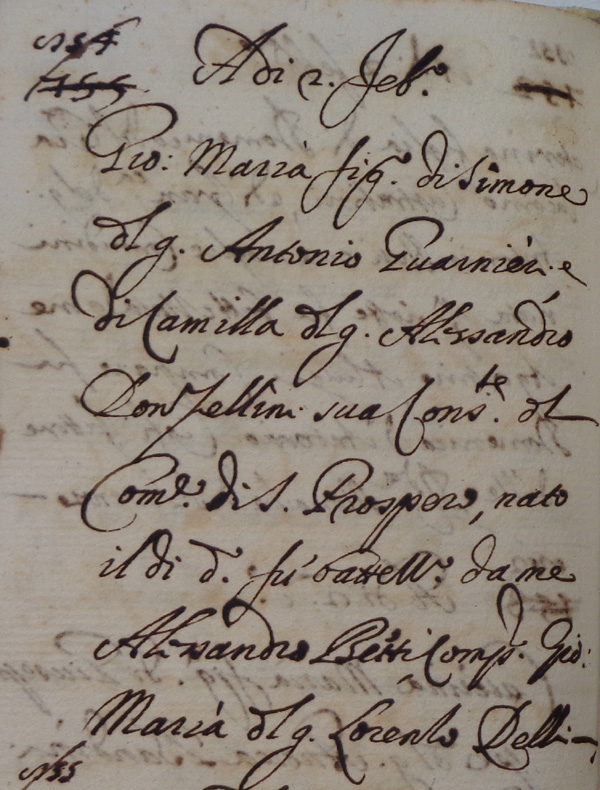 154
155 A di 2. Feb.o
Gio: Maria fig.o di Simone
dl g. Antonio Guarnieri e
di Camilla dl g. Alessandro
Donzellini sua Cons.te dl
Com.e di S. Prospero, nato
il di d.o fù battell.o da me
Alessandro Betti Comp.e Gio:
Maria dl g. Lorenzo Delli-
155